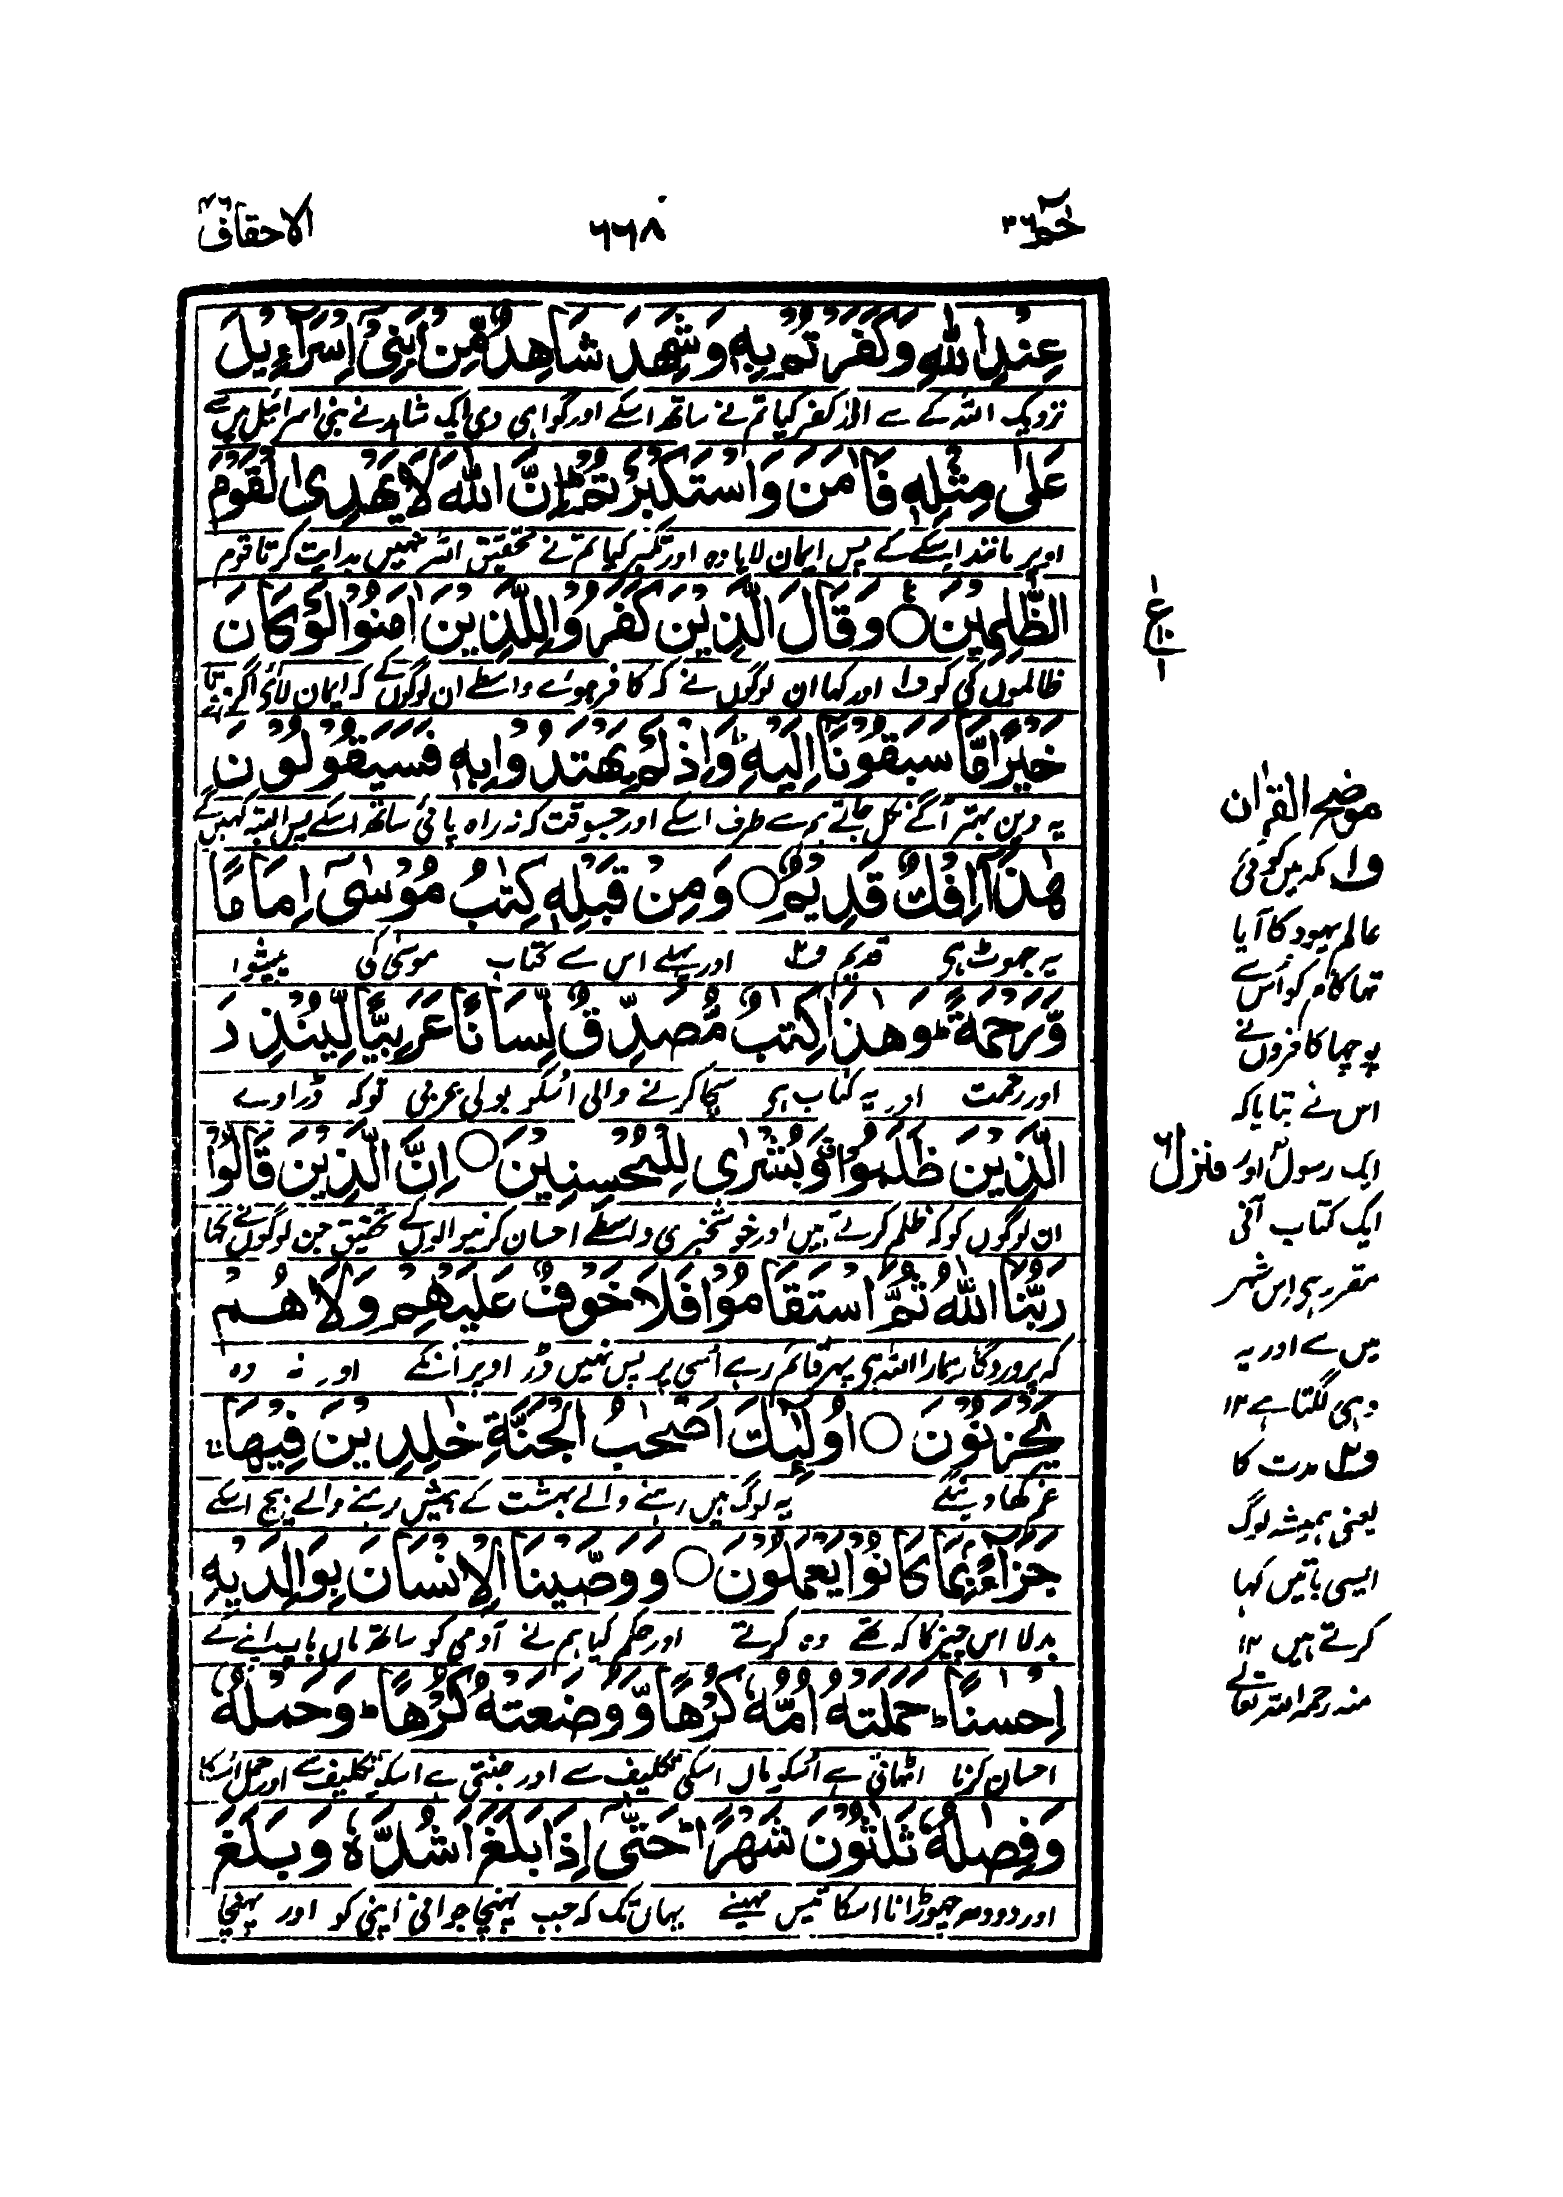 حٰمٓ ٢٦
٦٦٨
الاحقاف ٤٦
عِنْدِ اللّٰهِ وَكَفَرْتُمْ بِهٖ وَشَهِدَ شَاهِدٌ مِّنْۢ بَنِیْۤ اِسْرَآءِیْلَ
نزدیک اللہ کے سے اور کفر کیا تم نے ساتھ اسکے اور گواہی دی ایک شاہد نے بنی اسرائیل میں سے
عَلٰی مِثْلِهٖ فَاٰمَنَ وَاسْتَكْبَرْتُمْ ؕ اِنَّ اللّٰهَ لَا یَهْدِی الْقَوْمَ
اوپر مانند اسکے کے پس ایمان لایا وہ اور تکبر کیا تم نے تحقیق اللہ نہیں ہدایت کرتا قوم
الظّٰلِمِیْنَ ○ وَقَالَ الَّذِیْنَ كَفَرُوْا لِلَّذِیْنَ اٰمَنُوْا لَوْ كَانَ
ظالموں کی کو ف۱ اور کہا ان لوگوں نے کہ کافر ہوئے واسطے ان لوگوں کے کہ ایمان لائے اگر ہوتا
خَیْرًا مَّا سَبَقُوْنَاۤ اِلَیْهِ ؕ وَاِذْ لَمْ یَهْتَدُوْا بِهٖ فَسَیَقُوْلُوْنَ
یہ دین بہتر آگے نکل جاتے ہم سے طرف اسکے اور جس وقت کہ نہ راہ پائی ساتھ اسکے پس البتہ کہیں گے
هٰذَاۤ اِفْكٌ قَدِیْمٌ ○ وَمِنْ قَبْلِهٖ كِتٰبُ مُوْسٰۤی اِمَامًا
یہ جھوٹ ہی قدیم ف۲ اور پہلے اس سے کتاب موسیٰ کی پیشوا
وَّرَحْمَةً ؕ وَهٰذَا كِتٰبٌ مُّصَدِّقٌ لِّسَانًا عَرَبِیًّا لِّیُنْذِرَ
اور رحمت اور یہ کتاب ہی سچا کرنے والی اُسکو بولی عربی توکہ ڈراوے
الَّذِیْنَ ظَلَمُوْا ۖ وَبُشْرٰی لِلْمُحْسِنِیْنَ ○ اِنَّ الَّذِیْنَ قَالُوْا
ان لوگوں کو کہ ظلم کرتے ہیں اور خوشخبری واسطے احسان کرنیوالوں کے تحقیق جن لوگوں نے کہا
رَبُّنَا اللّٰهُ ثُمَّ اسْتَقَامُوْا فَلَا خَوْفٌ عَلَیْهِمْ وَلَا هُمْ
کہ پروردگار ہمارا اللہ ہی پھر قائم رہے اُسی پر پس نہیں ڈر اوپر اُنکے اور نہ وہ
یَحْزَنُوْنَ ○ اُولٰٓىِٕكَ اَصْحٰبُ الْجَنَّةِ خٰلِدِیْنَ فِیْهَا ۚ
غم کھاوینگے یہ لوگ ہیں رہنے والے بہشت کے ہمیش رہنے والے بیچ اسکے
جَزَآءًۢ بِمَا كَانُوْا یَعْمَلُوْنَ ○ وَوَصَّیْنَا الْاِنْسَانَ بِوَالِدَیْهِ
بدلا اس چیز کا کہ تھے وہ کرتے اور حکم کیا ہم نے آدمی کو ساتھ ماں باپ اپنے کے
اِحْسٰنًا ؕ حَمَلَتْهُ اُمُّهٗ كُرْهًا وَّوَضَعَتْهُ كُرْهًا ؕ وَحَمْلُهٗ
احسان کرنا اٹھاتی ہے اُسکو ماں اسکی تکلیف سے اور جنتی ہے اسکو تکلیف سے اور حمل اُسکا
وَفِصٰلُهٗ ثَلٰثُوْنَ شَهْرًا ؕ حَتّٰۤی اِذَا بَلَغَ اَشُدَّهٗ وَبَلَغَ
اور دودھ چھوڑانا اسکا تیس مہینے یہاں تک کہ جب پہنچا جوانی اپنی کو اور پہنچا
ع
موضح القرآن
ف۱ مکہ میں کوئی
عالم یہود کا آیا
تھا کام کو اُس سے
پوچھا کافروں نے
اس نے بتایا کہ
ایک رسول اور
منزل ٦
ایک کتاب آنی
مقرر ہی اِس شہر
میں سے اور یہ
وہی لگتا ہے ۱۲
ف۲ مدت کا
یعنی ہمیشہ لوگ
ایسی باتیں کہا
کرتے ہیں ۱۲
منہ رحمہ اللہ تعالے